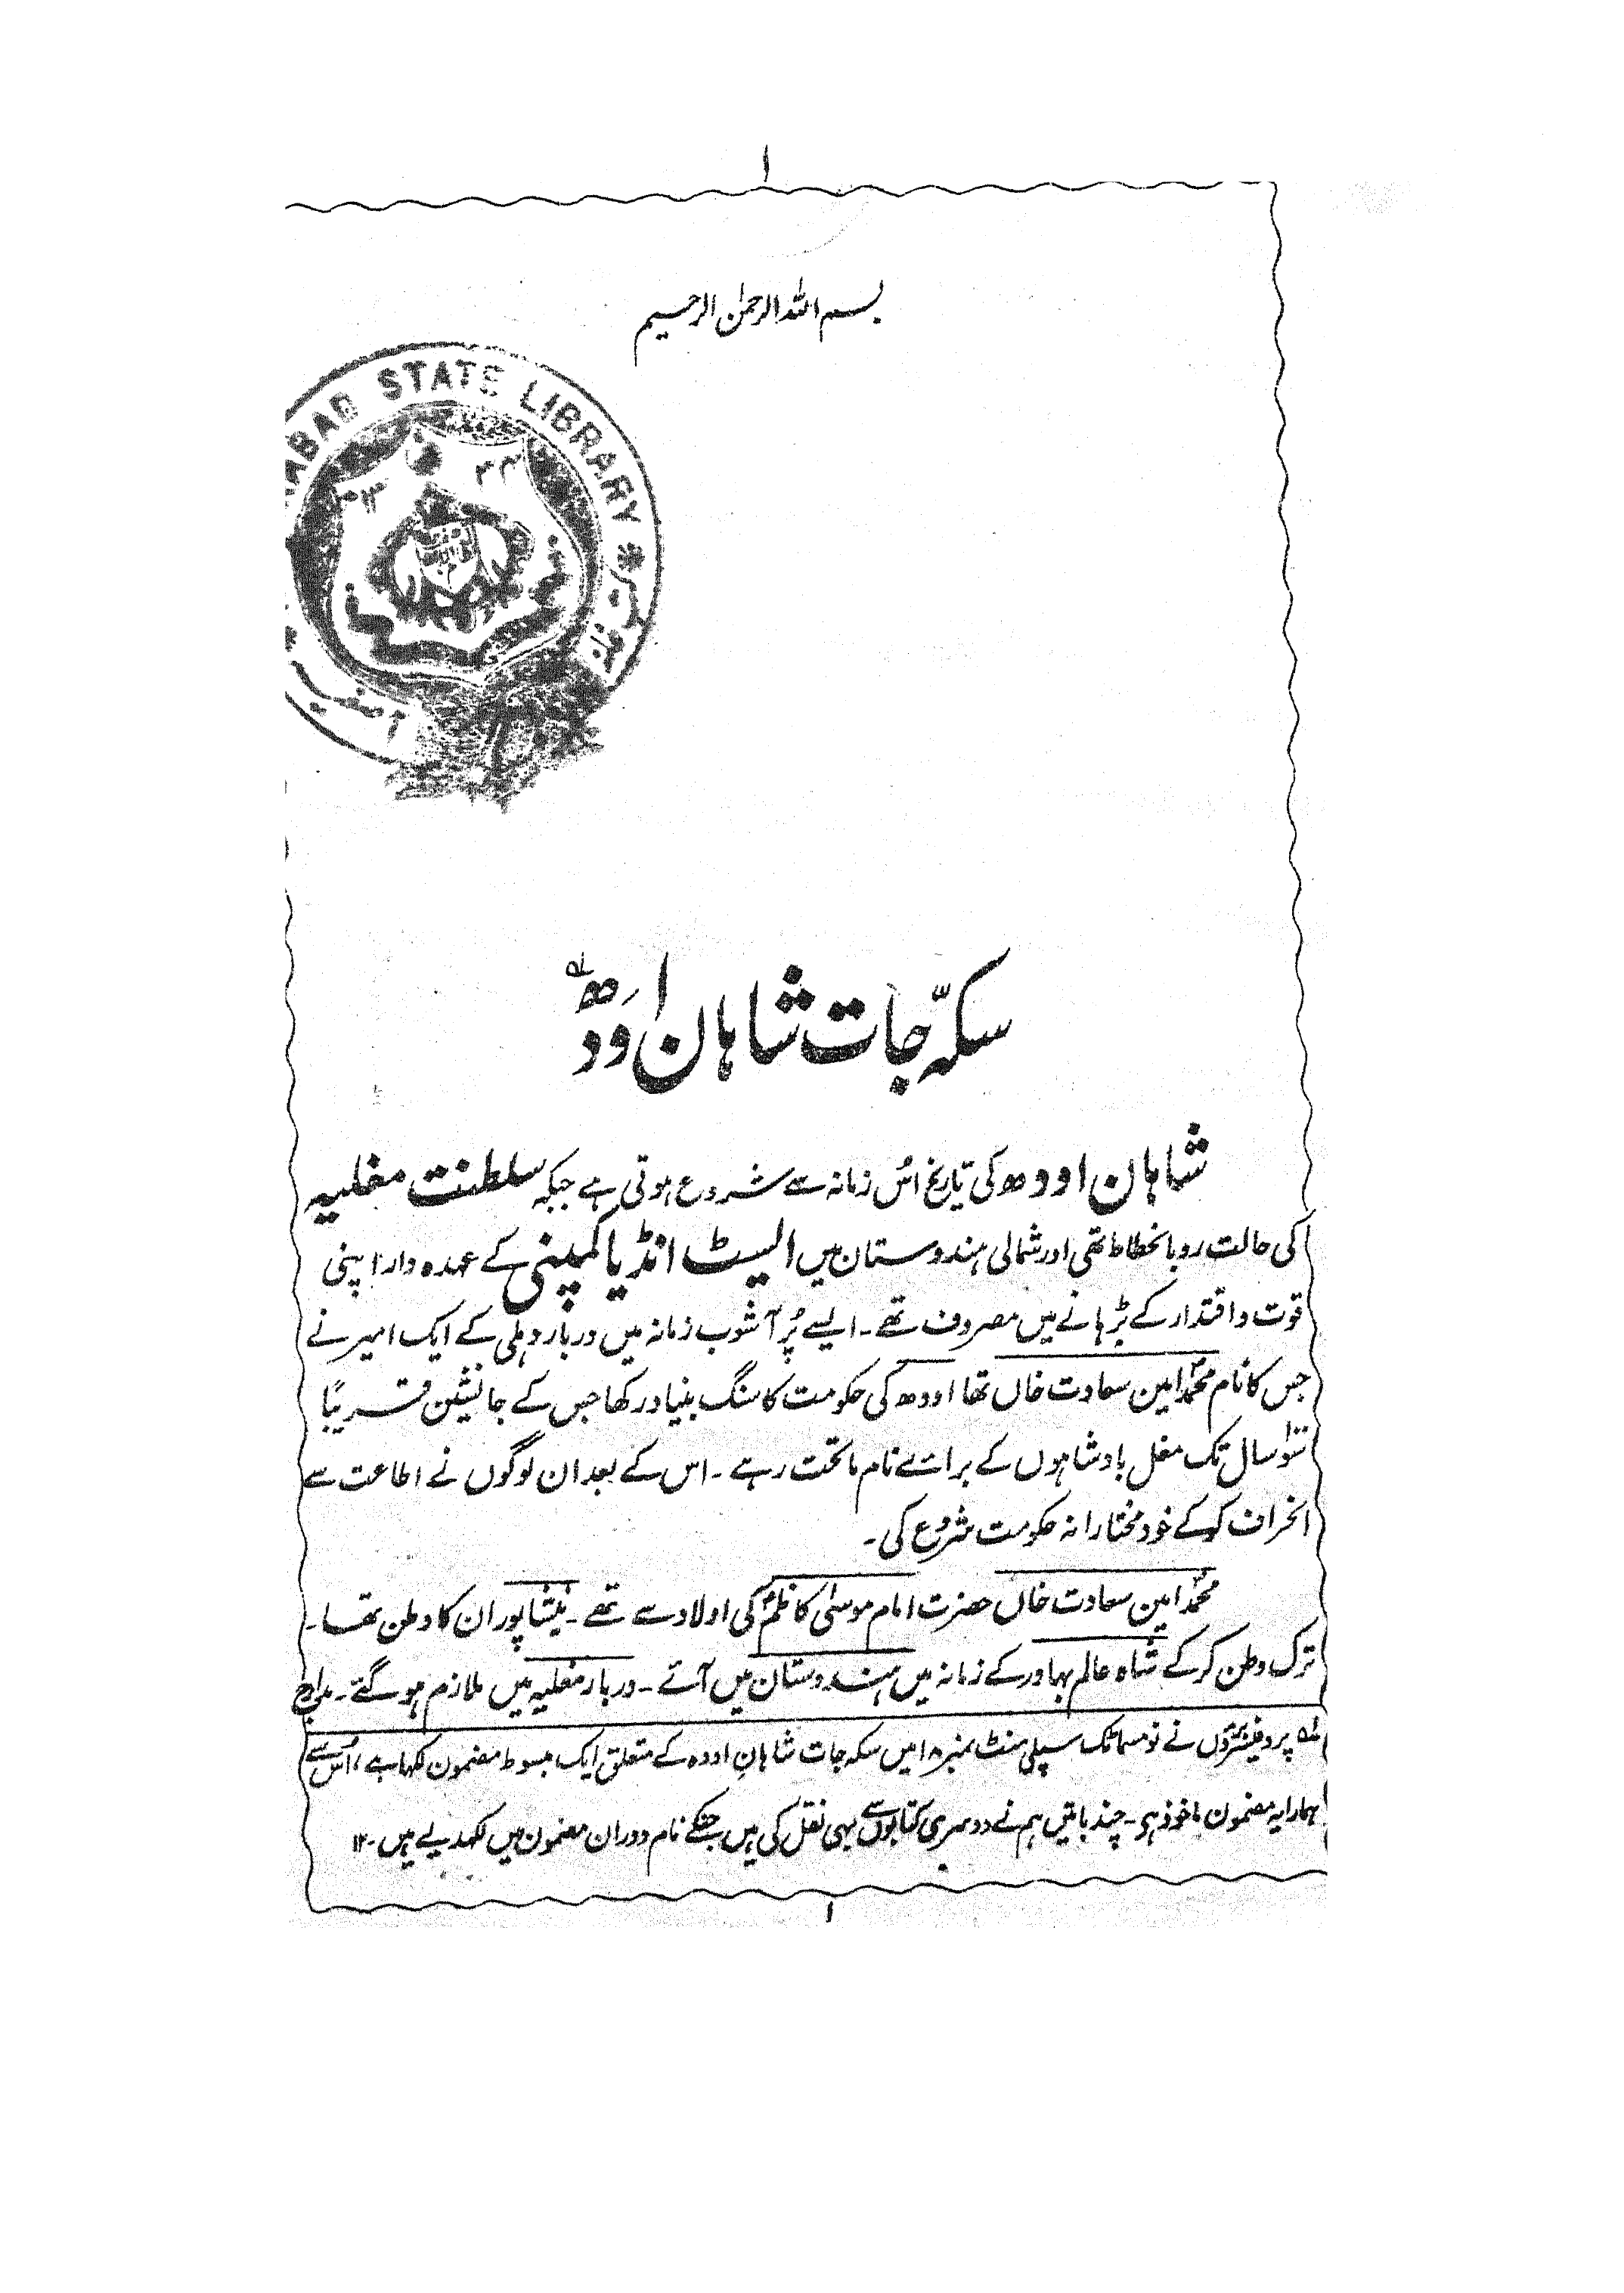 ۱
بسم اللہ الرحمٰن الرحیم
ABAD STATE LIBRARY
سکّہ جات شاہان اَودھ
شاہان اودھ کی تاریخ اُس زمانہ سے شروع ہوتی ہے جبکہ سلطنت مغلیہ
کی حالت رو بانحطاط تھی اور شمالی ہندوستان میں ایسٹ انڈیا کمپنی کے عہدہ دار اپنی
قوت و اقتدار کے بڑہانے میں مصروف تھے۔ ایسے پُر آشوب زمانہ میں دربار دہلی کے ایک امیر نے
جس کا نام محمّد امین سعادت خاں تھا اودھ کی حکومت کا سنگ بنیاد رکھا جس کے جانشین قریباً
سَو سال تک مغل بادشاہوں کے برائے نام ماتحت رہے۔ اس کے بعد ان لوگوں نے اطاعت سے
انحراف کرکے خود مختارانہ حکومت شروع کی۔
محمّد امین سعادت خاں حضرت امام موسیٰ کاظمؑ کی اولاد سے تھے۔ نیشاپور ان کا وطن تھا۔
ترک وطن کرکے شاہ عالم بہادر کے زمانہ میں ہندوستان میں آئے۔ دربار مغلیہ میں ملازم ہو گئے۔ مدارج
لہ پروفیسر برؤن نے نومسماٹک سپلی منٹ نمبر ۱۸ میں سکہ جات شاہانِ اودہ کے متعلق ایک مبسوط مضمون لکہا ہے، اُس سے
ہمارا یہ مضمون ماخوذ ہی۔ چند باتیں ہم نے دوسری کتابوں سے بہی نقل کی ہیں جنکے نام دوران مضمون میں لکہدیے ہیں۔ ۱۲
۱